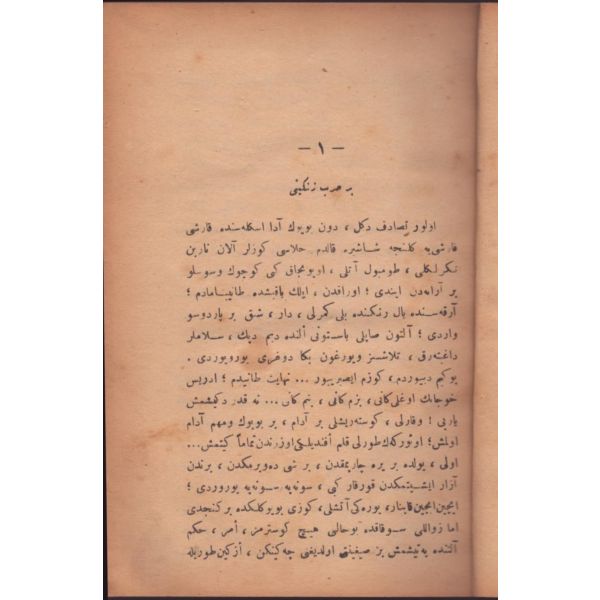 — ١ —
بر حرب زنكینی
اولور تصادف دكل ، دون بویوك آدا اسكله‌سنده قارشی
قارشی‌یه كلنجه شاشیره قالدم حلاسی كوزلر آلان نارین
تكرلكلی ، طومبول آتلی ، اویونجاق كبی كوچوك وسوسلو
بر آرابه‌دن ایندی ؛ اوراقدن ، ایلك باقیشده طانییامادم .
آرقه‌سنده بال رنكنده بلی كمرلی ، دار ، شق بر پاردوسو
واردی ؛ آلتون صاپلی باستونی النده دیم دیك ، سلاملر
داغیته‌رق ، تلاشسز ویورغون بكا دوغری یورویوردی .
بو كیم دییوردم ، كوزم ایصیرییور ... نهایت طانیدم ؛ ادریس
خوجانك اوغلی كانی ، بزم كانی ، بنم كانی ... نه قدر دكیشمش
یاربی ! وقارلی ، كوسته‌ریشلی بر آدام ، بر بویوك ومهم آدام
اولمش؛ اونوركه‌ك طورلی قلم افندیلكی اوزرندن تماماً كیتمش...
اولی ، یولده بر یره چارپمقدن ، بر شی ده‌ویرمكدن ، برندن
آزار ایشیتمكدن قورقار كبی ، سونه‌یه سونه‌یه یوروردی ؛
ایچین ایچین قاینار ، یوره‌كی آتشلی ، كوزی بویوكلكده بر كنجدی
اما زواللی سوقاقده بو حالی هیچ كوسترمز ، أمر ، حكم
آلتنده یه‌تیشمش بر صیغینتی اولدیغنی چه‌كینكن ، أزكین طوریله